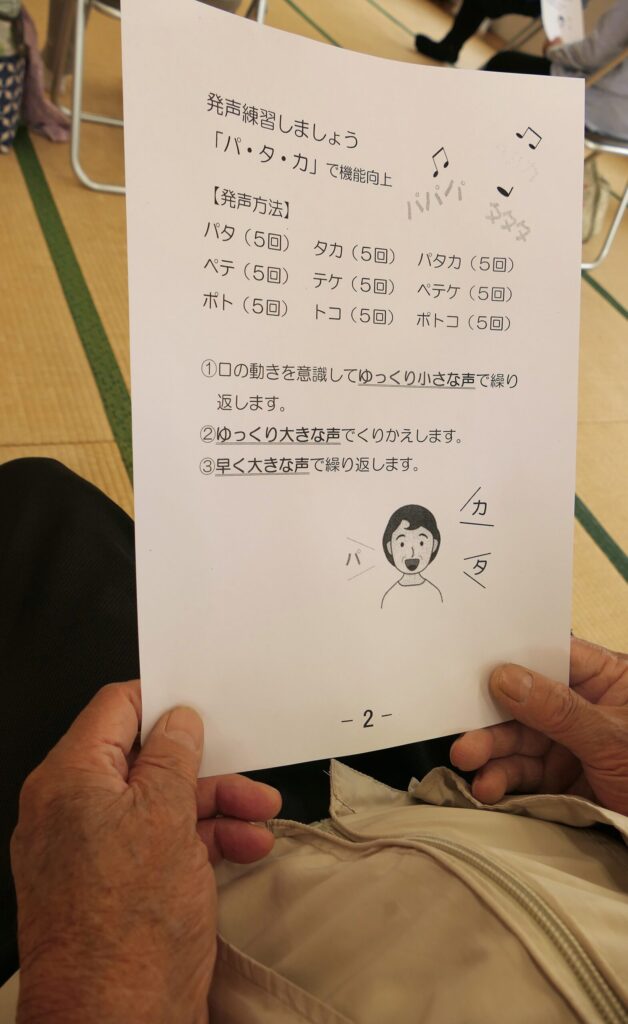 発声練習しましょう
「パ・タ・カ」で機能向上
パパパ
タタタ
【発声方法】
パタ（５回） タカ（５回） パタカ（５回）
ペテ（５回） テケ（５回） ペテケ（５回）
ポト（５回） トコ（５回） ポトコ（５回）
①口の動きを意識してゆっくり小さな声で繰り
返します。
②ゆっくり大きな声でくりかえします。
③早く大きな声で繰り返します。
カ
パ
タ
－２－